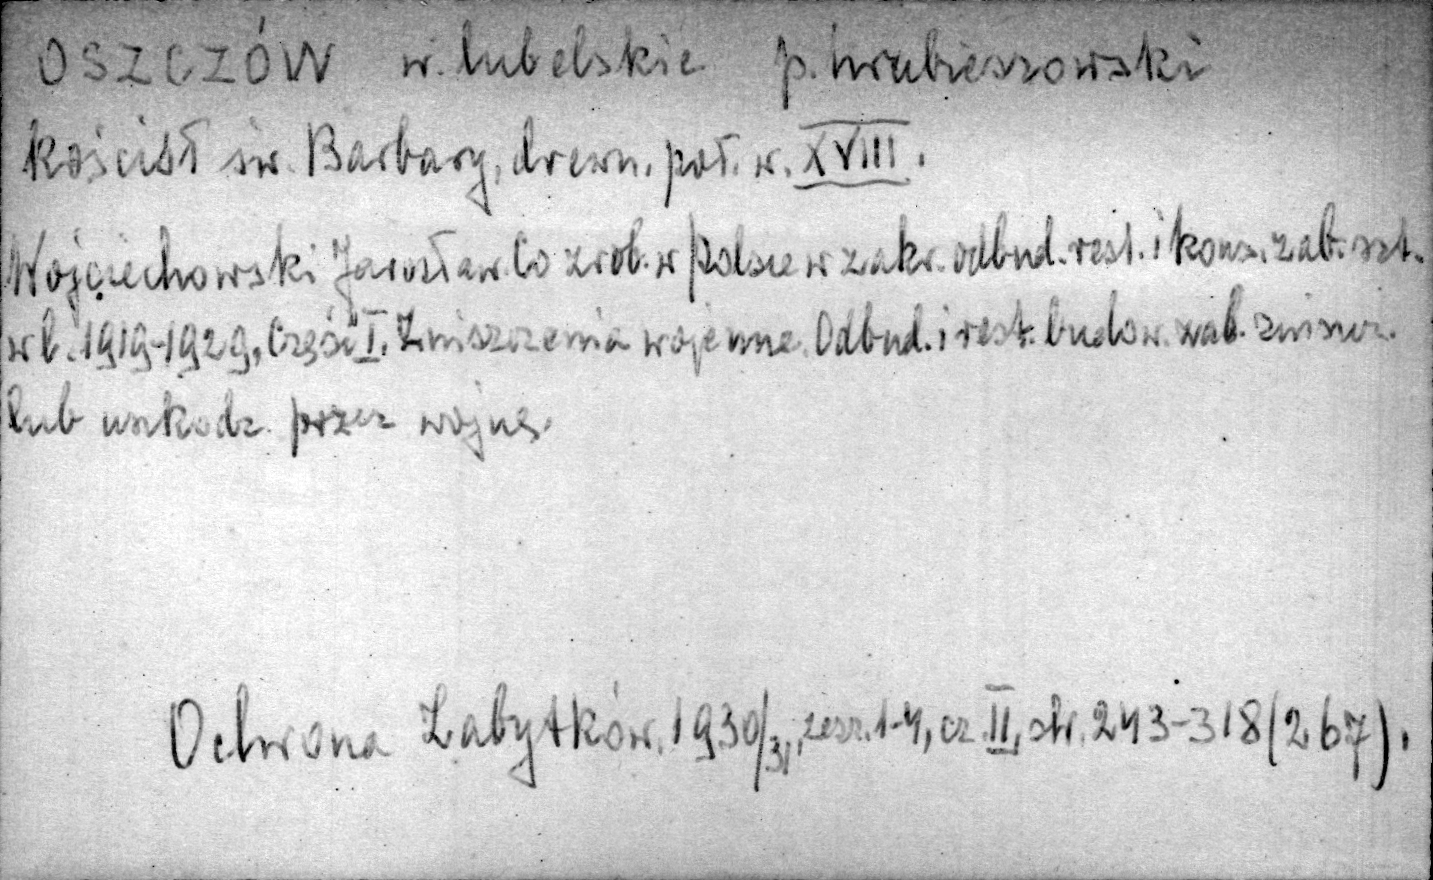 OSZCZÓW w. lubelskie p. hrubieszowski
kościół św. Barbary, drewn. poł. w. XVIII.
Wojciechowski Jarosław. Co zrob. w Polsce w zakr. odbud. rest. i kons. zab. szt.
w l. 1919-1929, Część I. Zniszczenia wojenne. Odbud. i rest. budow. zab. zniszcz.
lub uszkodz. przez wojnę.
Ochrona Zabytków. 1930/31, zesz. 1-4, cz. II, str. 243-318 (267).